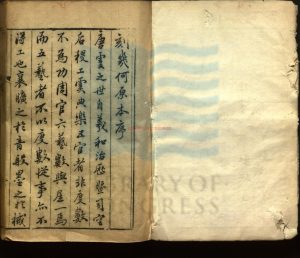 刻幾何原本序
唐虞之世自羲和治歷暨司空
后稷工虞典樂五官者非度數
不為功周官六藝數與居一焉
而五藝者不以度數從事亦不
得工也襄曠之於音般墨之於械
LIBRARY OF
CONGRESS